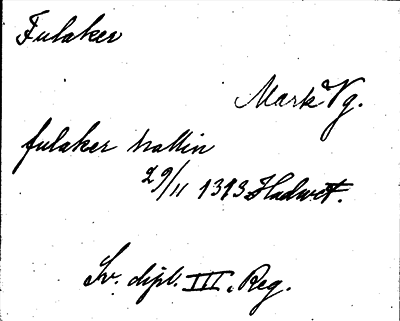 Fulaker
Mark Vg.
fulaker
29/11 1313
Sv. dipl. III, Reg.